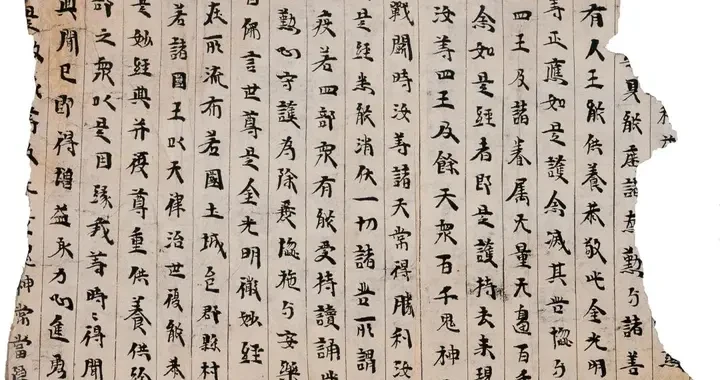 具能遮諸惡勤与諸善
有人王能供養恭敬此金光明
等正應如是護念滅其苦惱与
四王及諸眷属无量无邊百千
念如是經者即是護持去来現
汝等四王及餘天衆百千鬼神
戰鬪時汝等諸天常得勝利汝
是經悉能消伏一切諸苦所謂
疫若四部衆有能受持讀誦此
勤心守護為除衰惱施与安樂
白佛言世尊是金光明微妙經
在所流布若國土城邑郡縣村
若諸國王以天律治世復能恭
是妙經典并復尊重供養供給
部之衆以是因縁我等時〻得聞
典聞已即得增益身力心進勇
神常當